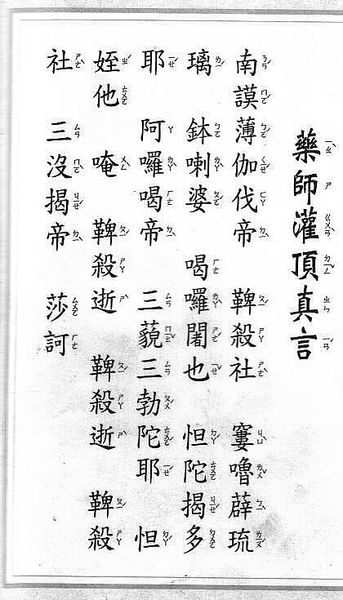 藥師灌頂真言
南謨薄伽伐帝 鞞殺社 窶嚕薜琉
璃 鉢喇婆 喝囉闍也 怛陀揭多
耶 阿囉喝帝 三藐三勃陀耶 怛
姪他 唵 鞞殺逝 鞞殺逝 鞞殺
社 三沒揭帝 莎訶